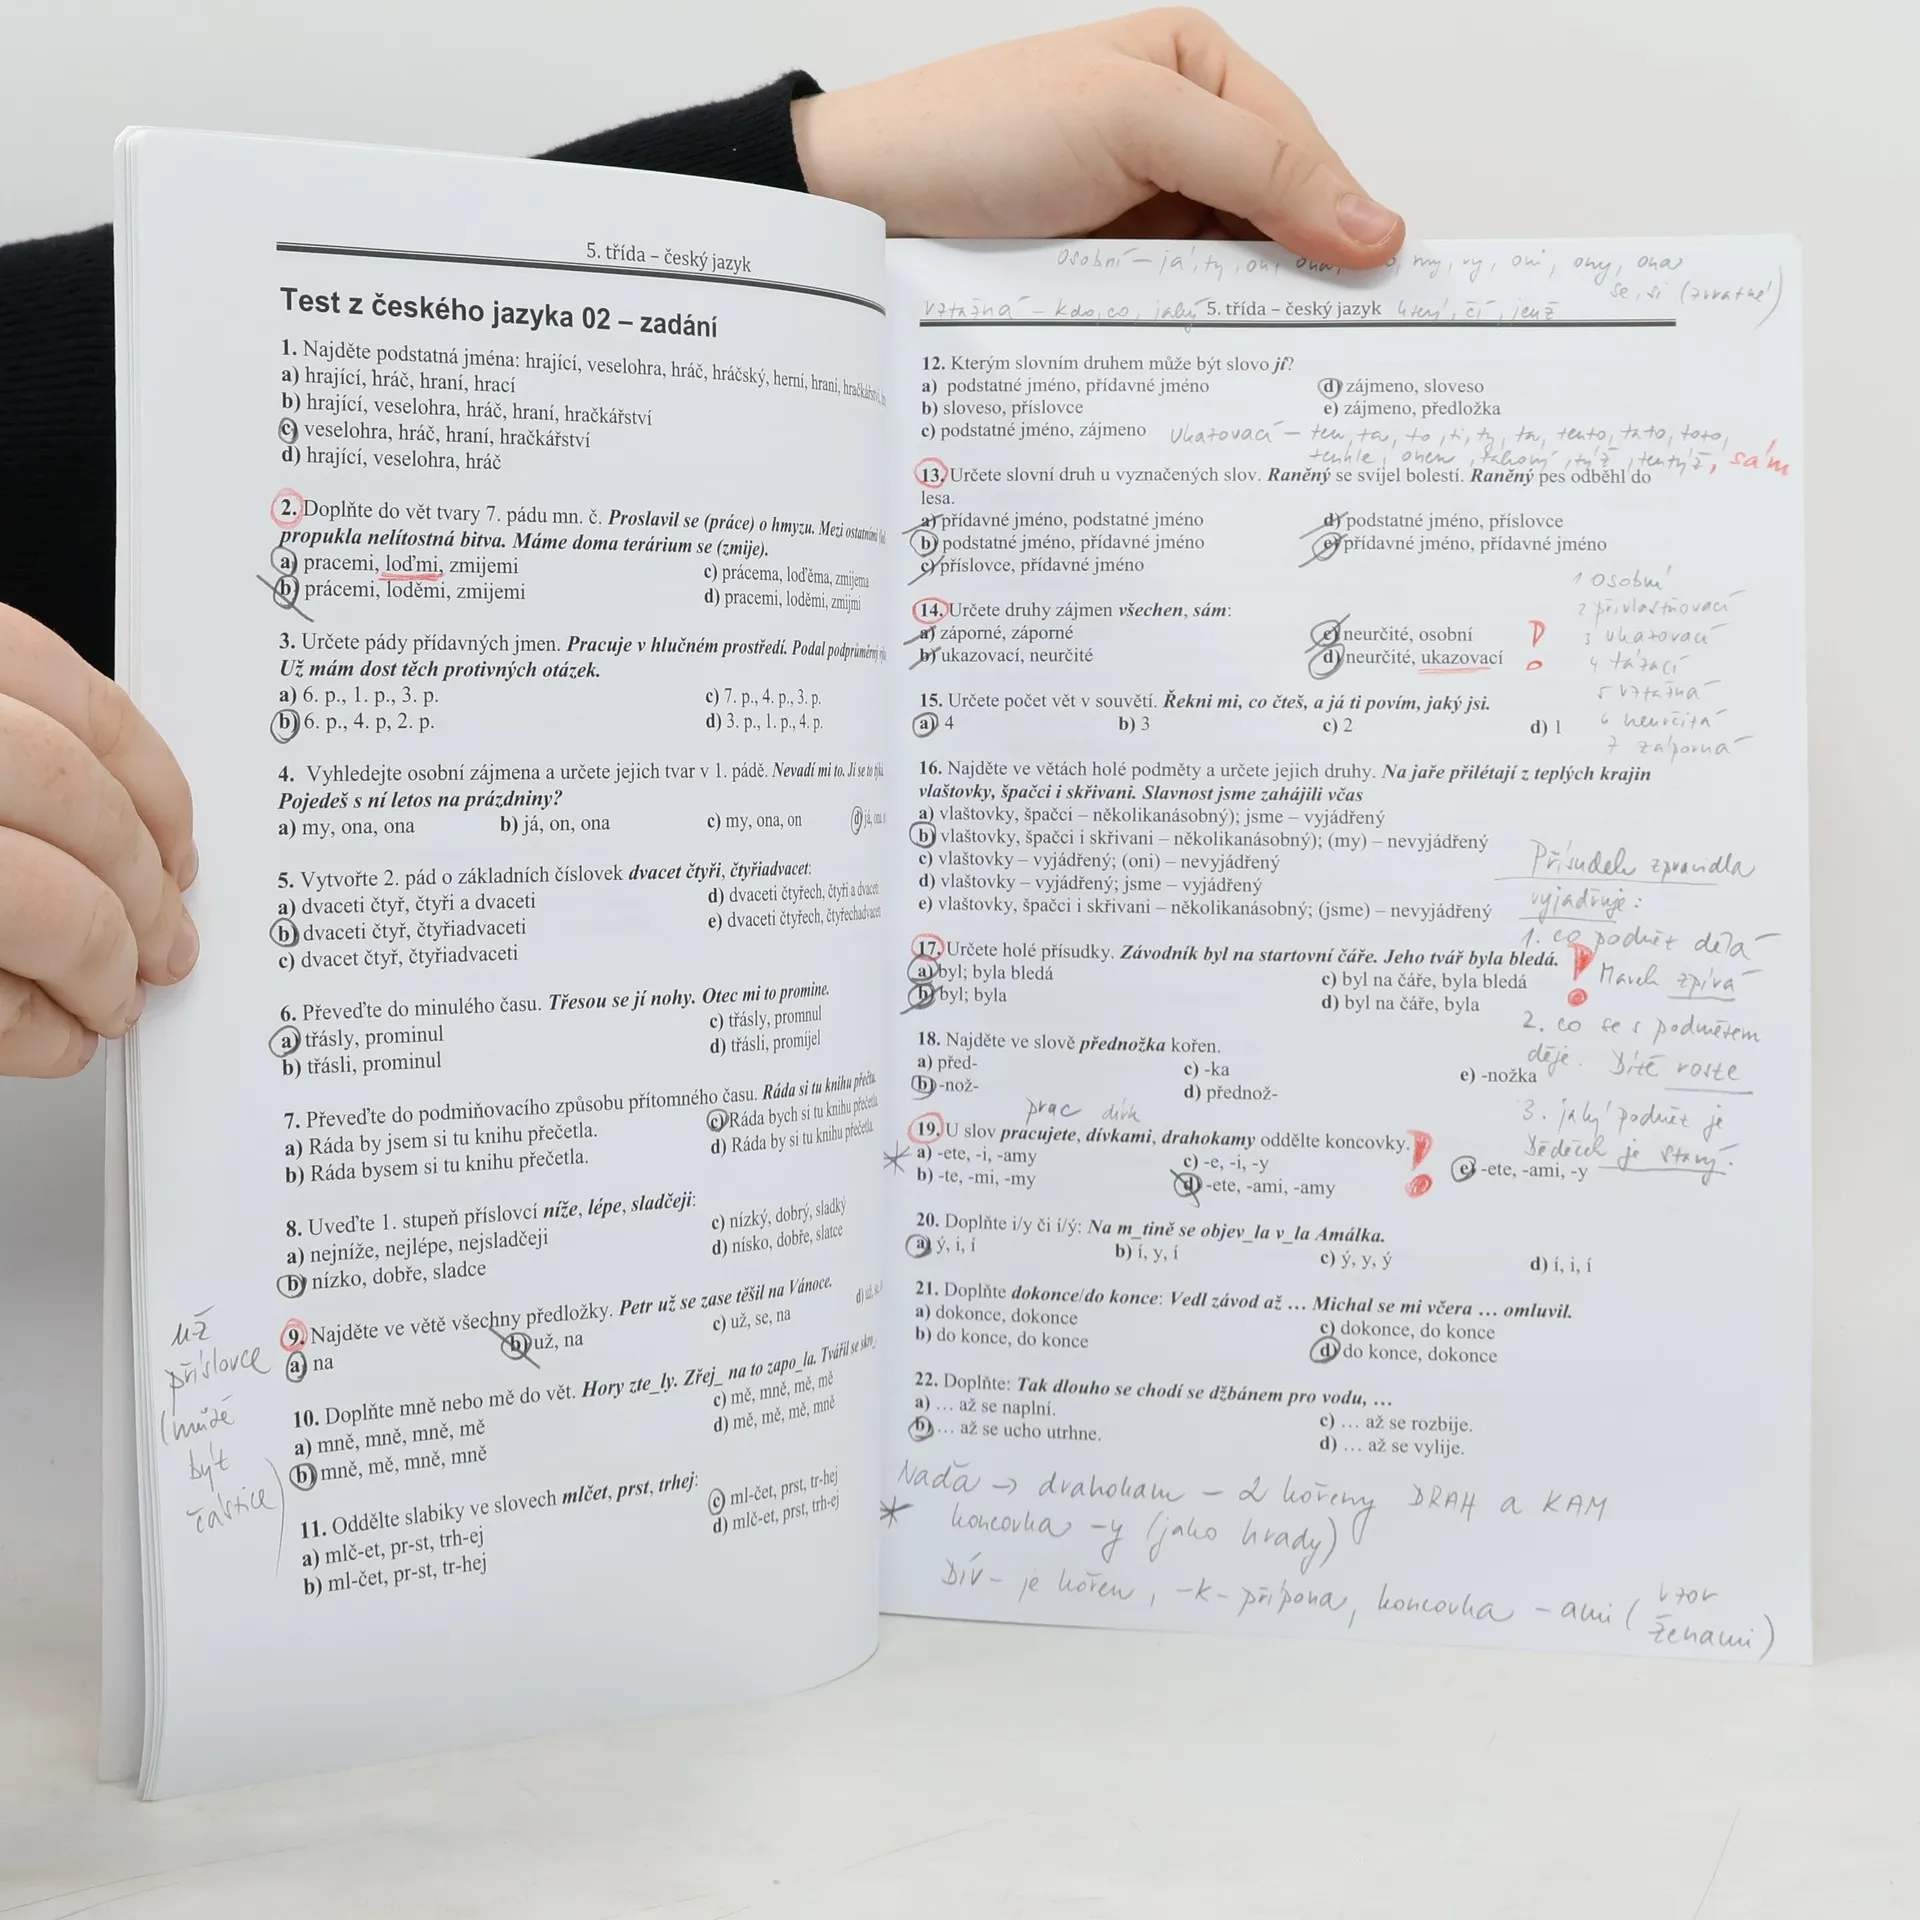 5. třída – český jazyk
Test z českého jazyka 02 – zadání
1. Najděte podstatná jména: hrající, veselohra, hráč, hráčský, herní, hraní, hračkářství,
a) hrající, hráč, hraní, hrací
b) hrající, veselohra, hráč, hraní, hračkářství
c) veselohra, hráč, hraní, hračkářství
d) hrající, veselohra, hráč
2. Doplňte do vět tvary 7. pádu mn. č. Proslavil se (práce) o hmyzu. Mezi ostatními
propukla nelítostná bitva. Máme doma terárium se (zmije).
a) pracemi, loďmi, zmijemi
c) prácema, loděma, zmijema
b) prácemi, loděmi, zmijemi
d) pracemi, loděmi, zmijmi
3. Určete pády přídavných jmen. Pracuje v hlučném prostředí. Podal podprůměrný
Už mám dost těch protivných otázek.
a) 6. p., 1. p., 3. p.
c) 7. p., 4. p., 3. p.
b) 6. p., 4. p, 2. p.
d) 3. p., 1. p., 4. p.
4. Vyhledejte osobní zájmena a určete jejich tvar v 1. pádě. Nevadí mi to. Jí se to
Pojedeš s ní letos na prázdniny?
a) my, ona, ona b) já, on, ona c) my, ona, on d) já,
5. Vytvořte 2. pád o základních číslovek dvacet čtyři, čtyřiadvacet:
a) dvaceti čtyř, čtyři a dvaceti
d) dvaceti čtyřech, čtyři a dvaceti
b) dvaceti čtyř, čtyřiadvaceti
e) dvaceti čtyřech, čtyřechadvaceti
c) dvacet čtyř, čtyřiadvaceti
6. Převeďte do minulého času. Třesou se jí nohy. Otec mi to promine.
a) třásly, prominul
c) třásly, promnul
b) třásli, prominul
d) třásli, promijel
7. Převeďte do podmiňovacího způsobu přítomného času. Ráda si tu knihu přečtu.
a) Ráda by jsem si tu knihu přečetla.
c) Ráda bych si tu knihu přečetla.
b) Ráda bysem si tu knihu přečetla.
d) Ráda by si tu knihu přečetla.
8. Uveďte 1. stupeň příslovcí níže, lépe, sladčeji:
a) nejníže, nejlépe, nejsladčeji
c) nízký, dobrý, sladký
b) nízko, dobře, sladce
d) nísko, dobře, slatce
9. Najděte ve větě všechny předložky. Petr už se zase těšil na Vánoce.
a) na b) už, na c) už, se, na d) už,
už
příslovce
(může
být
částice)
10. Doplňte mně nebo mě do vět. Hory zte_ly. Zřej_ na to zapo_la. Tvářil se
a) mně, mně, mně, mě
c) mě, mně, mě, mě
b) mně, mě, mně, mně
d) mě, mě, mě, mně
11. Oddělte slabiky ve slovech mlčet, prst, trhej:
a) mlč-et, pr-st, trh-ej
c) ml-čet, prst, tr-hej
b) ml-čet, pr-st, tr-hej
d) mlč-et, prst, trh-ej
osobní – já, ty, on, ona, my, vy, oni, ony, ona
se, si (zvratné)
vztažná – kdo, co, jaký který, čí, jenž
5. třída – český jazyk
12. Kterým slovním druhem může být slovo jí?
a) podstatné jméno, přídavné jméno
d) zájmeno, sloveso
b) sloveso, příslovce
e) zájmeno, předložka
c) podstatné jméno, zájmeno
ukazovací – ten, ta, to, ti, ty, ta, tento, tato, toto,
tenhle, onen, takový, týž, tentýž, sám
13. Určete slovní druh u vyznačených slov. Raněný se svíjel bolestí. Raněný pes odběhl do
lesa.
a) přídavné jméno, podstatné jméno
d) podstatné jméno, příslovce
b) podstatné jméno, přídavné jméno
e) přídavné jméno, přídavné jméno
c) příslovce, přídavné jméno
1 osobní
2 přivlastňovací
3 ukazovací
4 tázací
5 vztažná
6 neurčitá
7 záporná
14. Určete druhy zájmen všechen, sám:
a) záporné, záporné
c) neurčité, osobní
b) ukazovací, neurčité
d) neurčité, ukazovací !
15. Určete počet vět v souvětí. Řekni mi, co čteš, a já ti povím, jaký jsi.
a) 4 b) 3 c) 2 d) 1
16. Najděte ve větách holé podměty a určete jejich druhy. Na jaře přilétají z teplých krajin
vlaštovky, špačci i skřivani. Slavnost jsme zahájili včas
a) vlaštovky, špačci – několikanásobný); jsme – vyjádřený
b) vlaštovky, špačci i skřivani – několikanásobný); (my) – nevyjádřený
c) vlaštovky – vyjádřený; (oni) – nevyjádřený
d) vlaštovky – vyjádřený; jsme – vyjádřený
e) vlaštovky, špačci i skřivani – několikanásobný; (jsme) – nevyjádřený
Přísudek zpravidla
vyjadřuje:
1. co podmět dělá
Marek zpívá
2. co se s podmětem
děje. Dítě roste
3. jaký podmět je
Dědeček je starý.
17. Určete holé přísudky. Závodník byl na startovní čáře. Jeho tvář byla bledá. !
a) byl; byla bledá
c) byl na čáře, byla bledá
b) byl; byla
d) byl na čáře, byla
18. Najděte ve slově přednožka kořen.
a) před- c) -ka e) -nožka
b) -nož- d) přednož-
prac dívk
19. U slov pracujete, dívkami, drahokamy oddělte koncovky. !
* a) -ete, -i, -amy c) -e, -i, -y e) -ete, -ami, -y
b) -te, -mi, -my d) -ete, -ami, -amy
20. Doplňte i/y či í/ý: Na m_tině se objev_la v_la Amálka.
a) ý, i, í b) í, y, í c) ý, y, ý d) í, i, í
21. Doplňte dokonce/do konce: Vedl závod až … Michal se mi včera … omluvil.
a) dokonce, dokonce
c) dokonce, do konce
b) do konce, do konce
d) do konce, dokonce
22. Doplňte: Tak dlouho se chodí se džbánem pro vodu, …
a) … až se naplní.
c) … až se rozbije.
b) … až se ucho utrhne.
d) … až se vylije.
Naďa → drahokam – 2 kořeny DRAH a KAM
* koncovka -y (jako hrady)
Dív- je kořen, -k- přípona, koncovka -ami (vzor
ženami)